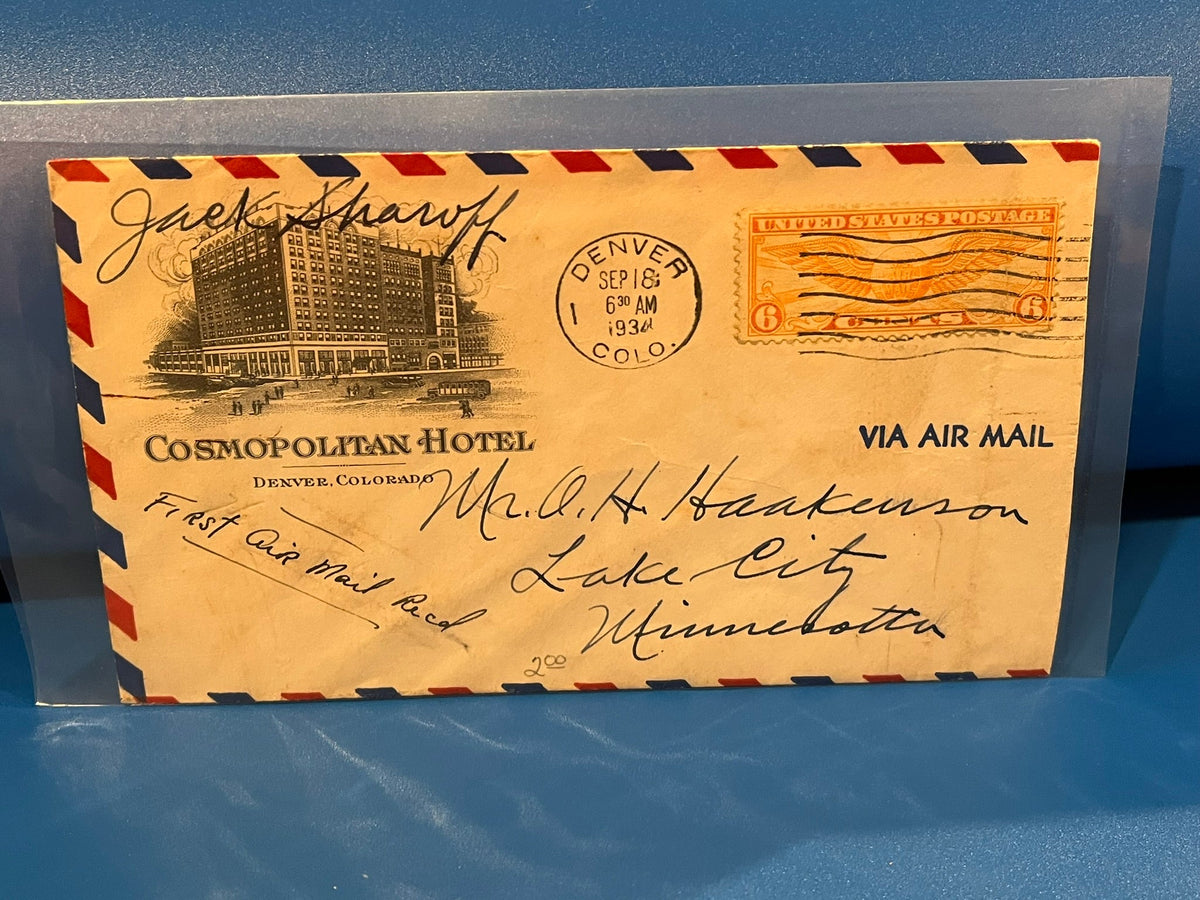 Jack Sharoff
COSMOPOLITAN HOTEL
DENVER, COLORADO
DENVER
SEP 18
6 30 AM
1934
COLO.
1
UNITED STATES POSTAGE
6 CENTS 6
VIA AIR MAIL
Mr. O. H. Haakenson
Lake City
Minnesotta
First Air Mail Recd
2.00